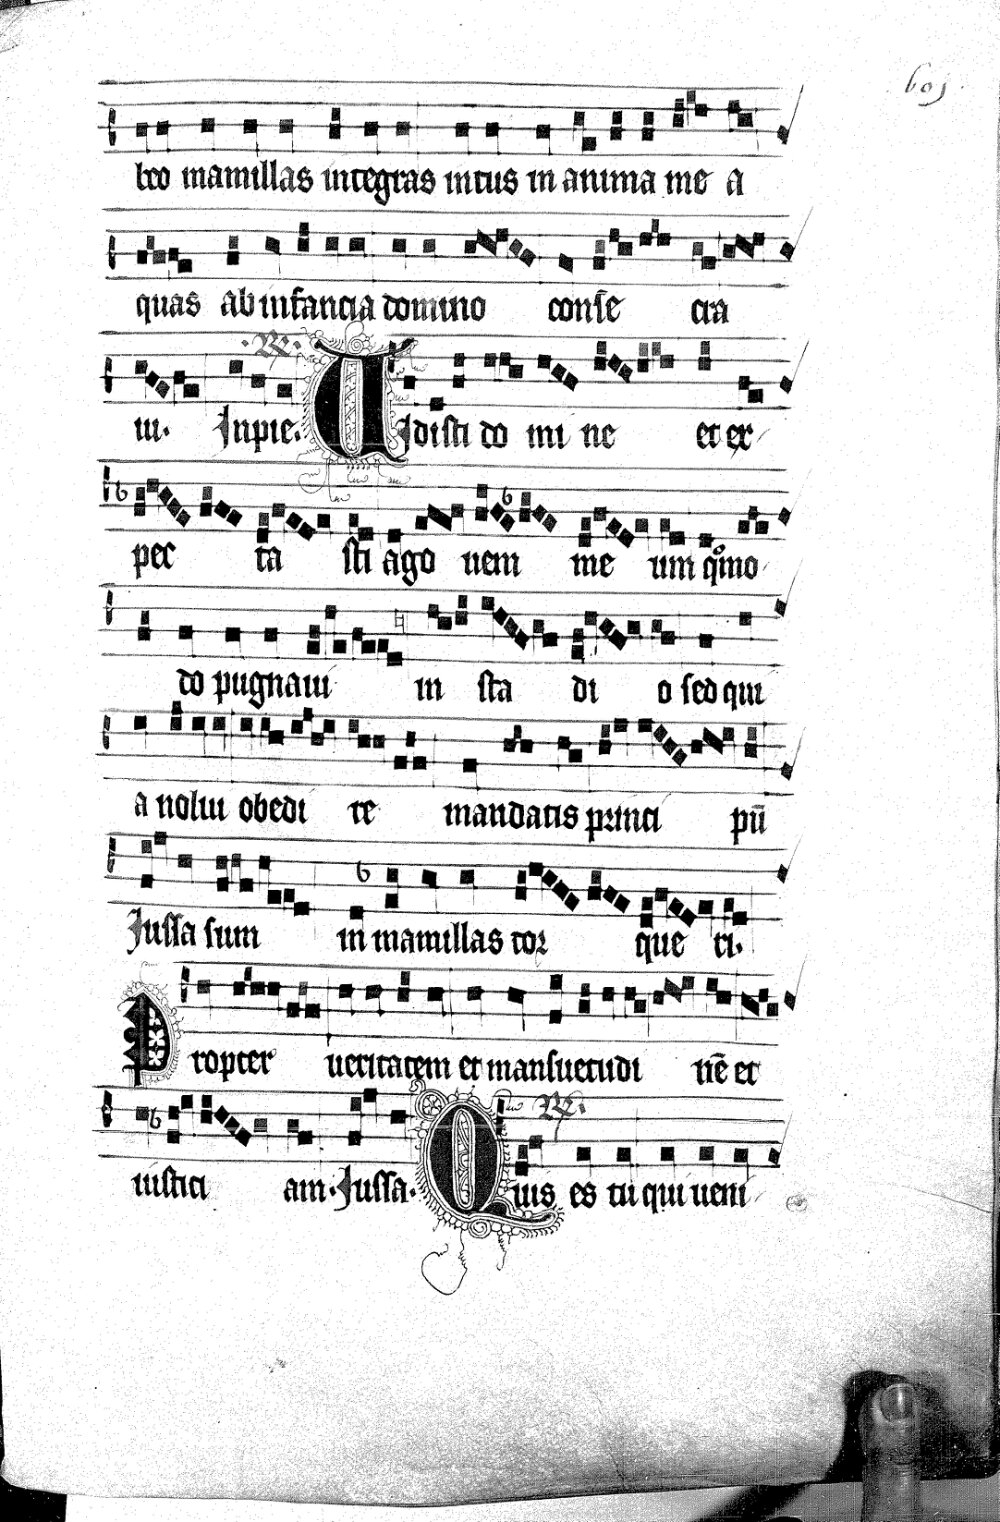 601
beo mamillas integras intus in anima me a
quas ab infancia domino conse cra
ui. Inpie. R. Uidisti do mi ne et ex
pec ta sti ago nem me um qͦmo
do pugnaui in sta di o sed qui
a nolui obedi re mandatis princi pū
Jussa sum in mamillas tor que ri.
Propter ueritatem et mansuetudi nē et
iustici am. Jussa. R. Quis es tu qui ueni